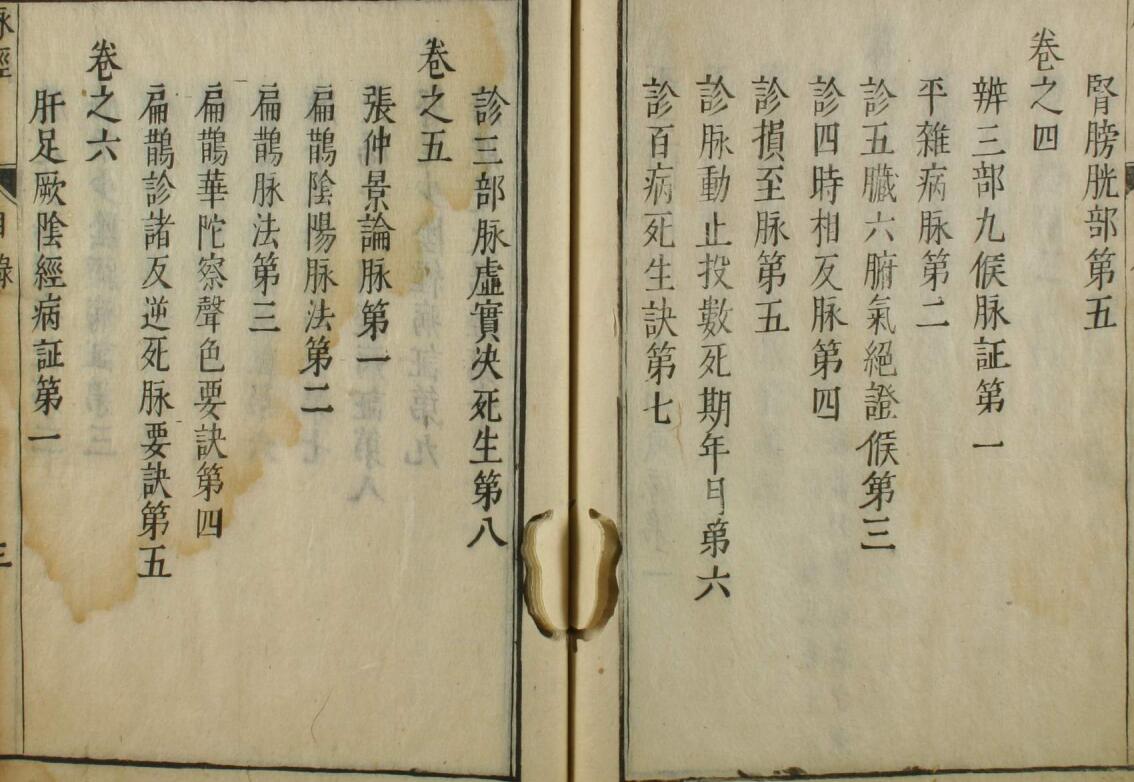 腎膀胱部第五
卷之四
辨三部九候脉証第一
平雜病脉第二
診五臟六腑氣絕證候第三
診四時相反脉第四
診損至脉第五
診脉動止投數死期年月第六
診百病死生訣第七
診三部脉虛實決死生第八
卷之五
張仲景論脉第一
扁鵲陰陽脉法第二
扁鵲脉法第三
扁鵲華陀察聲色要訣第四
扁鵲診諸反逆死脉要訣第五
卷之六
肝足厥陰經病証第一
脉經
目錄
三